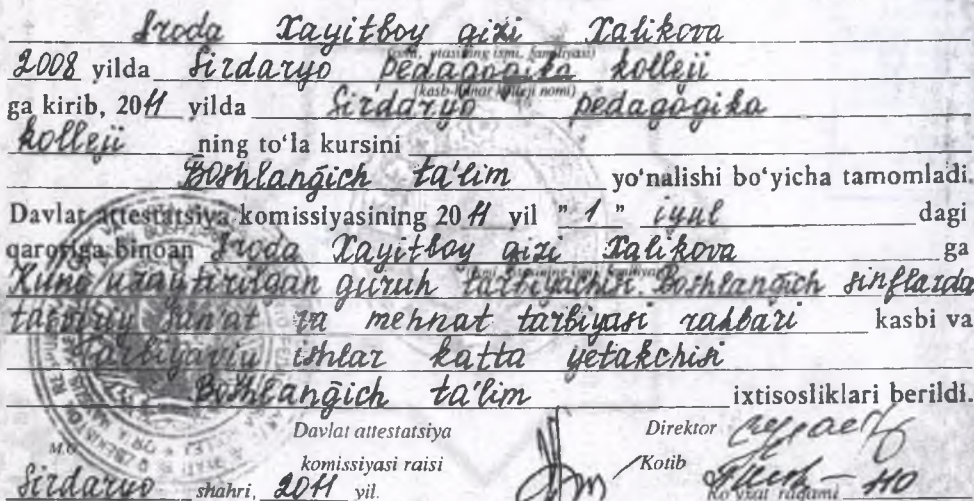 Iroda Xayitboy qizi Xalikova
(ismi, otasining ismi, familiyasi)
2008 yilda Sirdaryo pedagogika kolleji
(kasb-hunar kolleji nomi)
ga kirib, 2011 yilda Sirdaryo pedagogika
kolleji ning to‘la kursini
Boshlangich ta'lim yo‘nalishi bo‘yicha tamomladi.
Davlat attestatsiya komissiyasining 2011 yil " 1 " iyul dagi
qaroriga binoan Iroda Xayitboy qizi Xalikova ga
Kuni uzaytirilgan guruh tarbiyachisi. Boshlangich sinflarda
tasviriy san'at va mehnat tarbiyasi rahbari kasbi va
Tarbiyaviy ishlar katta yetakchisi
Boshlangich ta'lim ixtisosliklari berildi.
Davlat attestatsiya Direktor
M.O‘
komissiyasi raisi Kotib
Sirdaryo shahri, 2011 yil. Ro‘yxat raqami 410